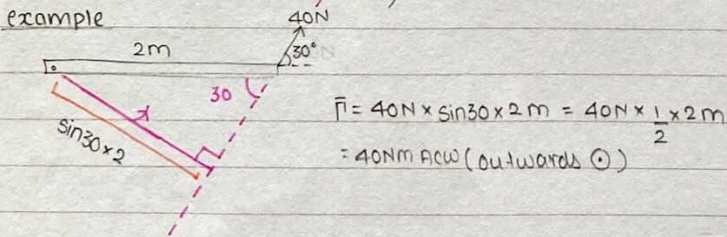 example
40N
2m
30°
30
x
sin30×2
Γ̄ = 40N × sin30 × 2m = 40N × 1/2 × 2m
= 40Nm ACW (outwards ⊙)